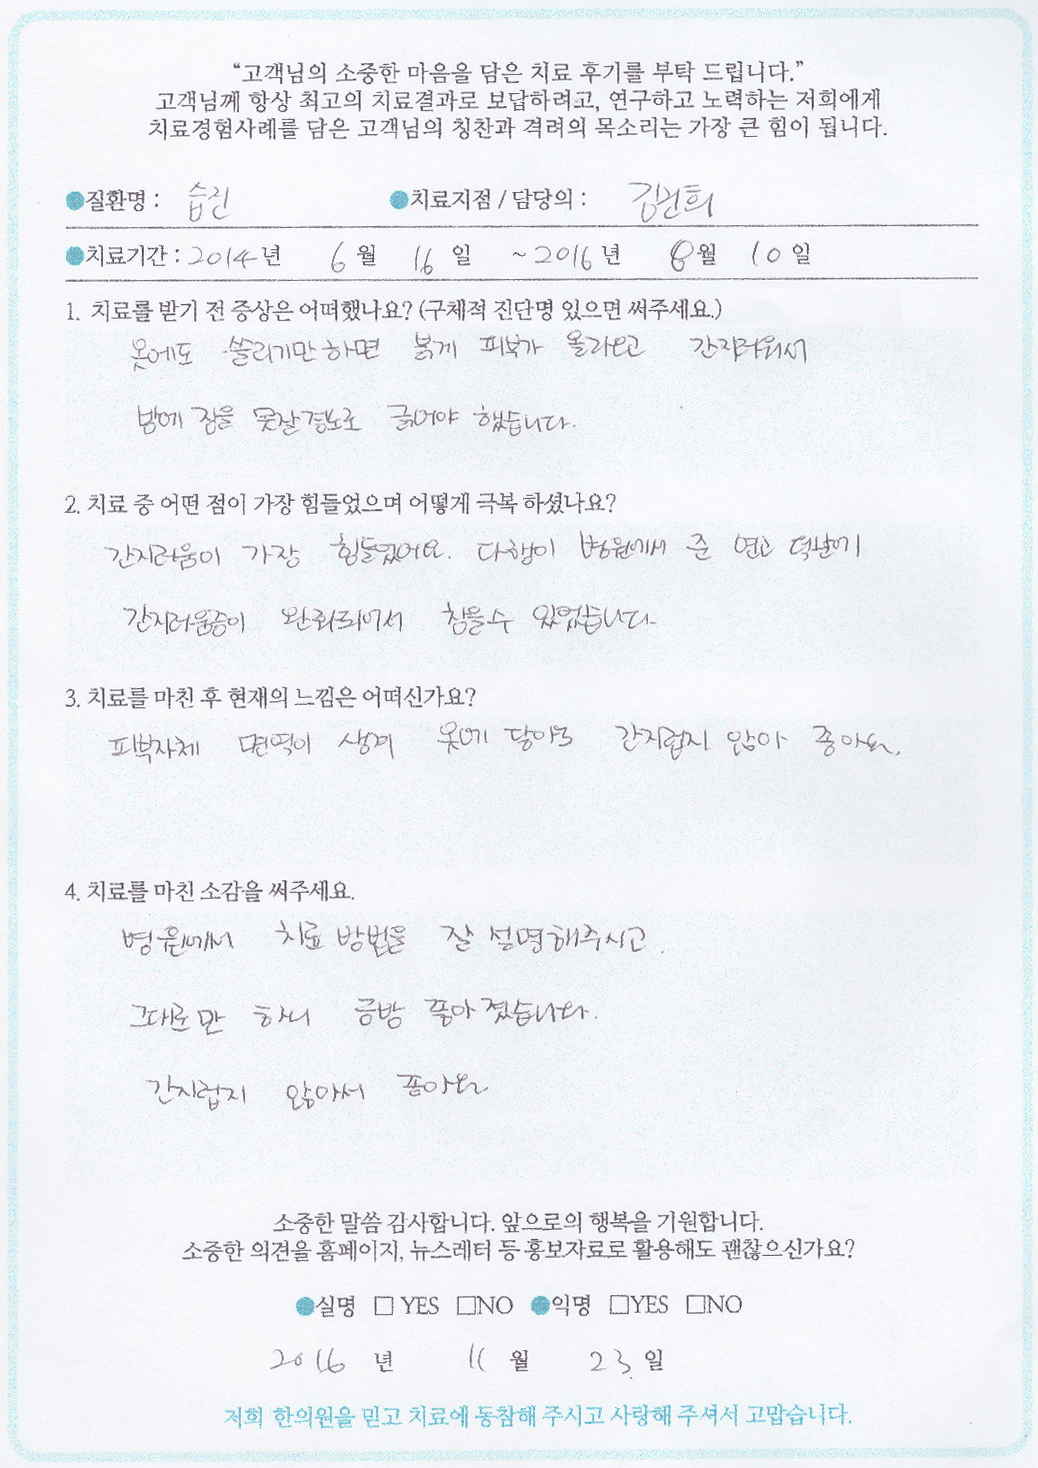 “고객님의 소중한 마음을 담은 치료 후기를 부탁 드립니다.”
고객님께 항상 최고의 치료결과로 보답하려고, 연구하고 노력하는 저희에게
치료경험사례를 담은 고객님의 칭찬과 격려의 목소리는 가장 큰 힘이 됩니다.
●질환명 : 습진 ●치료지점 / 담당의 :
●치료기간 : 2014년 6월 16일 ~2016년 8월 10일
1. 치료를 받기 전 증상은 어떠했나요? (구체적 진단명 있으면 써주세요.)
옷에도 쓸리기만하면 붉게 피부가 올라오고 간지러워서
밤에 잠을 못잘정도로 긁어야 했습니다.
2. 치료 중 어떤 점이 가장 힘들었으며 어떻게 극복 하셨나요?
간지러움이 가장 힘들었어요. 다행이 병원에서 준 연고 덕분에
간지러움증이 완화되어서 참을수 있었습니다.
3. 치료를 마친 후 현재의 느낌은 어떠신가요?
피부자체 면역이 생겨 옷에 닿아도 간지럽지 않아 좋아요.
4. 치료를 마친 소감을 써주세요.
병원에서 치료 방법을 잘 설명해주시고.
그대로만 하니 금방 좋아졌습니다.
간지럽지 않아서 좋아요
소중한 말씀 감사합니다. 앞으로의 행복을 기원합니다.
소중한 의견을 홈페이지, 뉴스레터 등 홍보자료로 활용해도 괜찮으신가요?
●실명 □ YES □NO ●익명 □YES □NO
2016 년 11 월 23 일
저희 한의원을 믿고 치료에 동참해 주시고 사랑해 주셔서 고맙습니다.